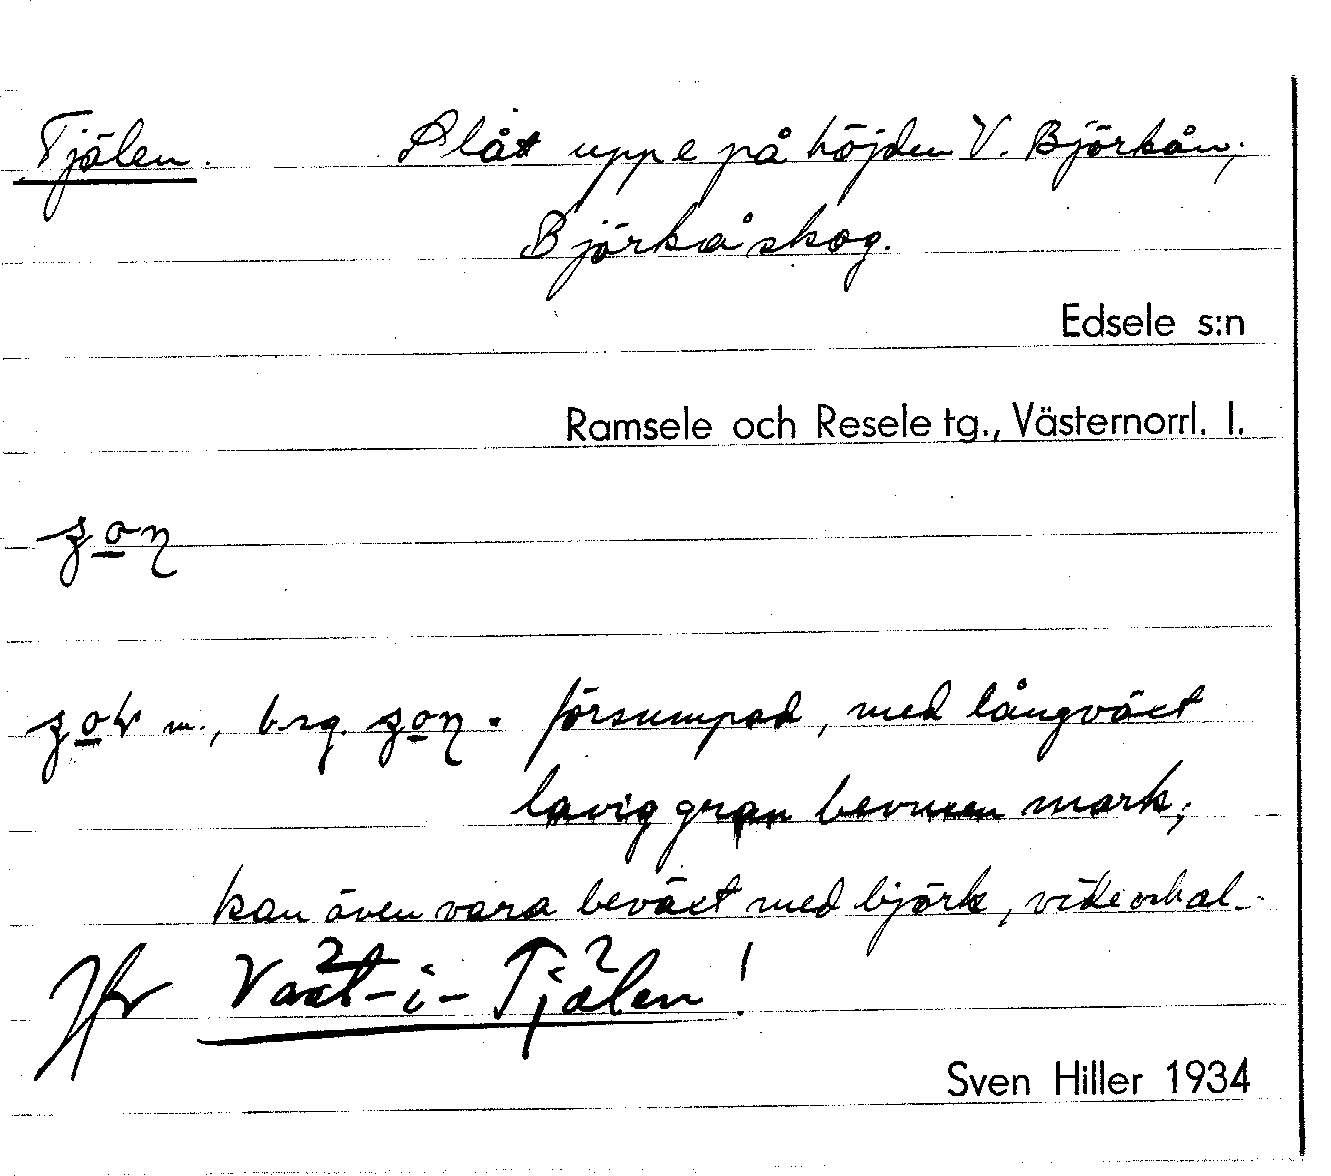 Tjälen. Slåt uppe på höjden V. Björkån;
Björkåskog.
Edsele s:n
Ramsele och Resele tg., Västernorrl. l.
m., försumpad, med långväxt
lavig gran bevuxen mark;
kan även vara beväxt med björk, vide och al.
Jfr Vaxt-i-Tjälen!
Sven Hiller 1934